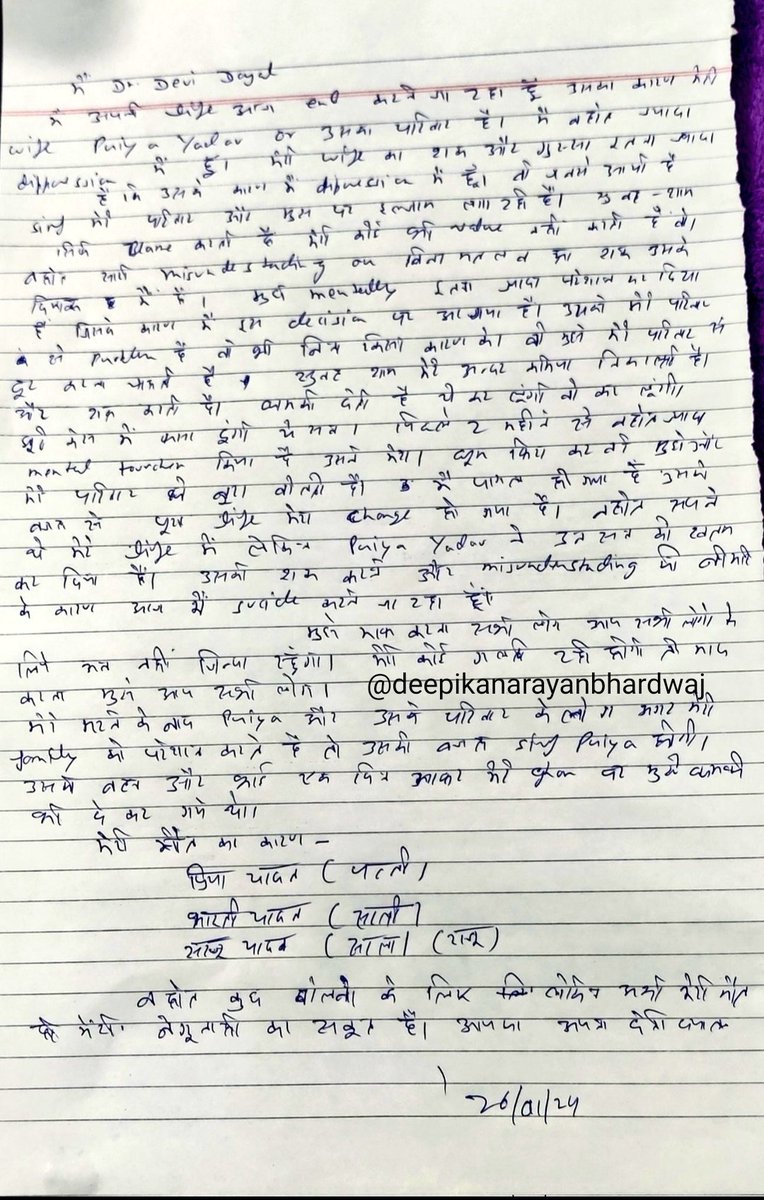 मैं Dr. Devi Dayal
मैं अपनी life आज end करने जा रहा हूँ उसका कारण मेरी
wife Priya Yadav or उसका परिवार है। मैं बहोत ज्यादा
dippression में हूँ। मेरी wife का शक और गुस्सा इतना ज्यादा
है कि उसके कारण मैं dippression में हूँ। वो जबसे आयी है
सिर्फ मेरे परिवार और मुझ पर इल्जाम लगा रही है। सुबह-शाम
सिर्फ blame करती है मेरी कोई भी value नहीं करती है वो।
बहोत सारी misunderstanding or बिना मतलब का शक उसके
दिमाक में है। मुझे mentally इतना ज्यादा परेशान कर दिया
है जिसके कारण मैं इस decision पर आ गया हूँ। उसको मेरे परिवार
से problem है वो भी बिना किसी कारण के। वो मुझे मेरे परिवार से
दूर करना चाहती है। सुबह शाम मेरे अन्दर कमिया निकालती है।
और शक करती है। धमकी देती है ये कर लूंगी वो कर लूंगी।
झूठे केस में फसा दूंगी ये सब। पिछले 2 महीने से बहोत ज्यादा
mental tourchur किया है उसने मेरा। phone किया कर वो मुझे और
मेरे परिवार को बुरा बोलती है। मैं पागल हो गया हूँ उसकी
वजह से पूरा life मेरा change हो गया है। बहोत सपने
थे मेरे life में लेकिन Priya Yadav ने उन सब को खतम
कर दिया है। उसकी शक करने और misunderstanding की बीमारी
के कारण आज मैं sucide करने जा रहा हूँ।
मुझे माफ करना सभी लोग आप सभी लोगो के
लिये अब नहीं जिन्दा रहूंगा। मेरी कोई गलती रही होगी तो माफ
करना मुझे आप सभी लोग।
@deepikanarayanbhardwaj
मेरे मरने के बाद Priya और उसके परिवार के लोग अगर मेरी
family को परेशान करते है तो उसकी वजह सिर्फ Priya होगी।
उसके बहन और भाई एक दिन आकर मेरे घर पर मुझे धमकी
भी दे कर गये थे।
मेरी मौत का कारण –
प्रिया यादव (पत्नी)
भारती यादव (साली)
यादव (साला) (राजू)
बहोत कुछ बोलने के लिए लेकिन अभी मेरी मौत
ही मेरी बेगुनाही का सबूत है। आपका अपना देवी दयाल
26/01/24